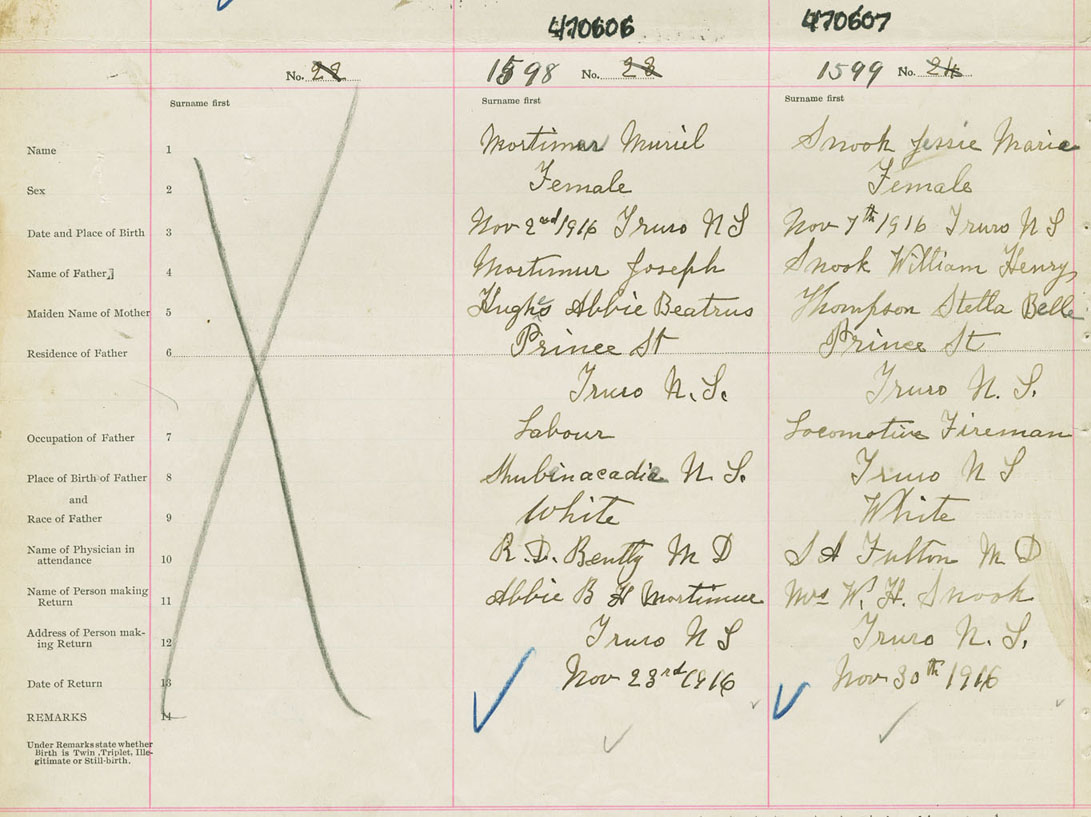 470606
470607
No. 22
1598 No. 23
1599 No. 24
Surname first
Surname first
Surname first
Name 1
Mortimer Muriel
Snook Jessie Marie
Sex 2
Female
Female
Date and Place of Birth 3
Nov 2nd 1916 Truro N S
Nov 7th 1916 Truro N S
Name of Father 4
Mortimur Joseph
Snook William Henry
Maiden Name of Mother 5
Hughs Abbie Beatrus
Thompson Stella Belle
Residence of Father 6
Prince St
Prince St
Truro N. S.
Truro N. S.
Occupation of Father 7
Labour
Locomotive Fireman
Place of Birth of Father 8
Shubinacadie N. S.
Truro N S
and
Race of Father 9
White
White
Name of Physician in
attendance 10
R. D. Bently M D
S A Fulton M D
Name of Person making
Return 11
Abbie B H Mortimer
Mrs W. H. Snook
Address of Person mak-
ing Return 12
Truro N S
Truro N. S.
Date of Return 13
Nov 23rd 1916
Nov 30th 1916
REMARKS 14
Under Remarks state whether
Birth is Twin, Triplet, Ille-
gitimate or Still-birth.